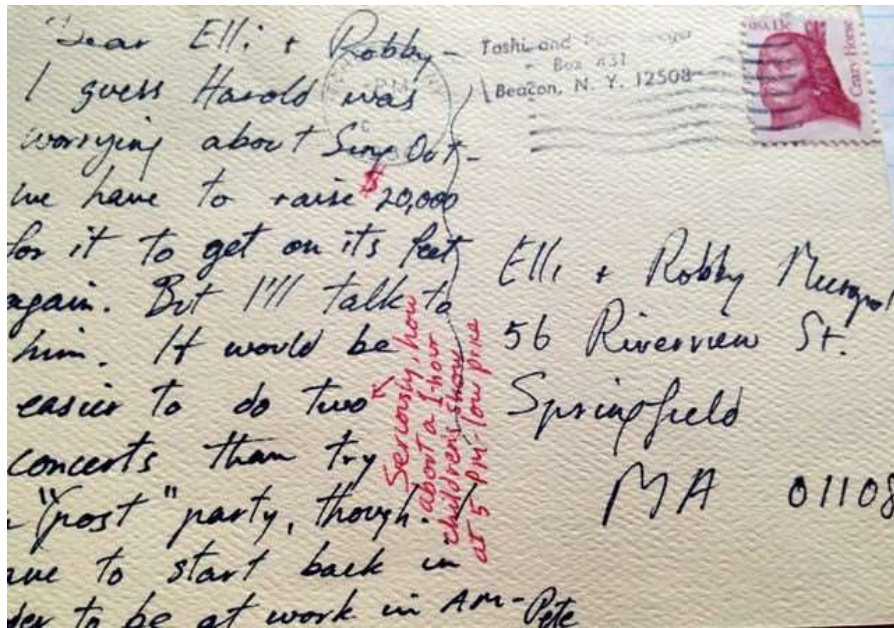 Dear Elli + Robby -
I guess Harold was
worrying about Sing Out -
we have to raise $20,000
for it to get on its feet
again. But I'll talk to
him. It would be
easier to do two
concerts than try
"post" party, though. I
have to start back in
order to be at work in AM - Pete
Seriously, how
about a 1 hour
children's show
at 5 PM - low price
Toshi and Seeger
Box 431
Beacon, N. Y. 12508
PM
USA 13c
Crazy Horse
Elli + Robby
56 Riverview St.
Springfield
MA 01108